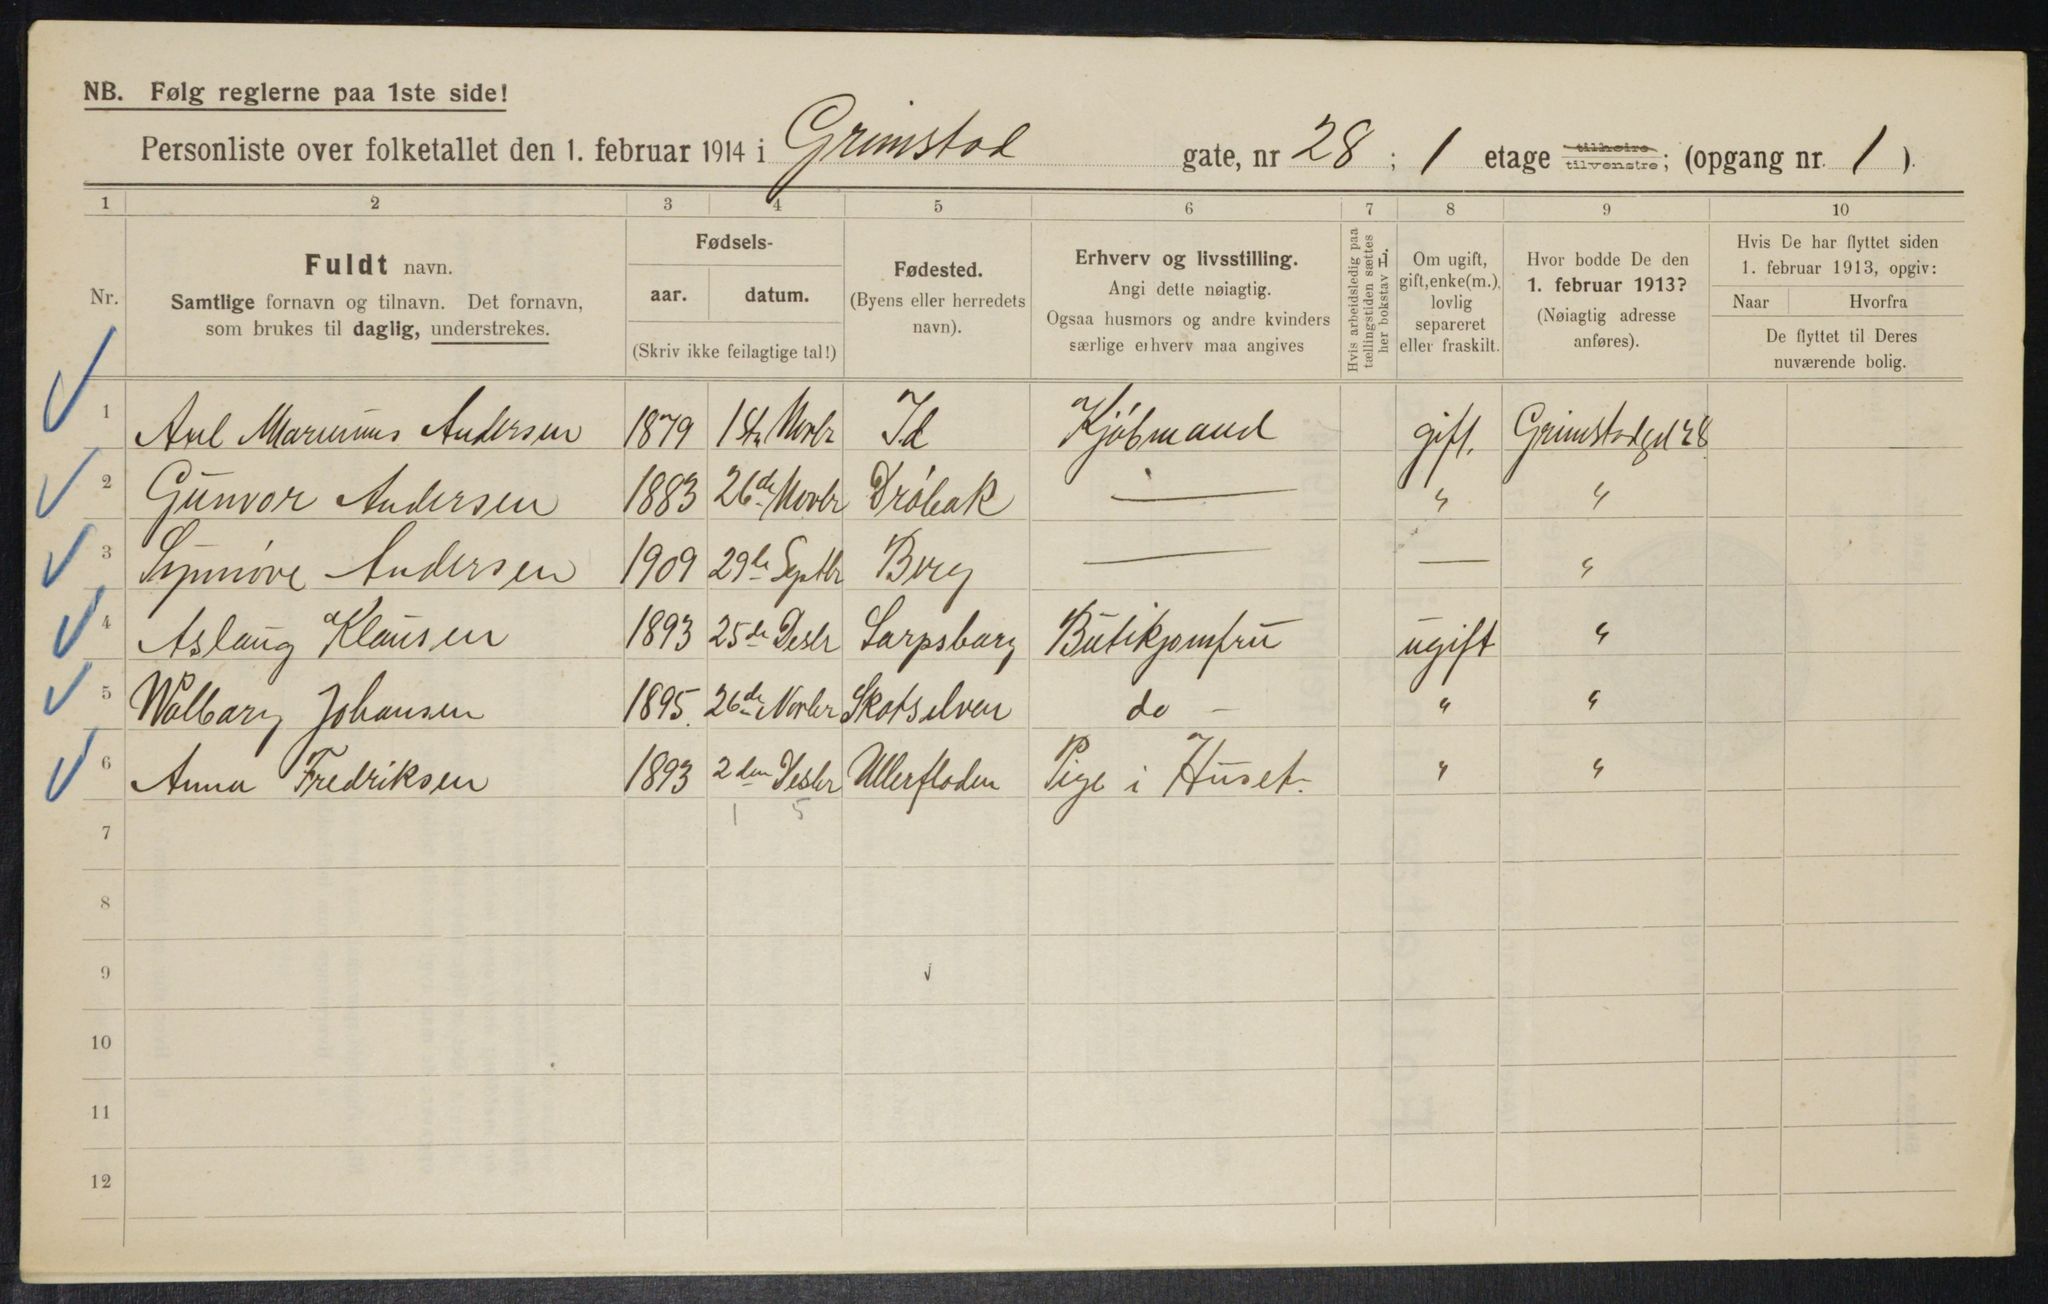 NB. Følg reglerne paa 1ste side!
Personliste over folketallet den 1. februar 1914 i Grimstad gate, nr 28 ; 1 etage tilhøire tilvenstre; (opgang nr. 1 ).
1 2 3 4 5 6 7 8 9 10
Nr.
Fuldt navn.
Samtlige fornavn og tilnavn. Det fornavn,
som brukes til daglig, understrekes.
Fødsels-
aar. datum.
(Skriv ikke feilagtige tal!)
Fødested.
(Byens eller herredets
navn).
Erhverv og livsstilling.
Angi dette nøiagtig.
Ogsaa husmors og andre kvinders
særlige erhverv maa angives
Hvis arbeidsledig paa
tællingstiden sættes
her bokstav H.
Om ugift,
gift, enke(m.),
lovlig
separeret
eller fraskilt.
Hvor bodde De den
1. februar 1913?
(Nøiagtig adresse
anføres).
Hvis De har flyttet siden
1. februar 1913, opgiv:
Naar Hvorfra
De flyttet til Deres
nuværende bolig.
1 Axel Marinius Andersen 1879 1ste Novbr Id Kjöbmand gift. Grimstadgd 28
2 Gunvor Andersen 1883 26de Novbr Dröbak — " "
3 Synnöve Andersen 1909 29de Septbr Berg — — "
4 Aslaug Klausen 1893 25de Desbr Sarpsborg Butikjomfru ugift "
5 Wålborg Johansen 1895. 26de Novbr Skotselven do - " "
6 Anna Fredriksen 1893 2den Desbr Ullerfloden Pige i Huset. " "
1 5
7
8
9
10
11
12